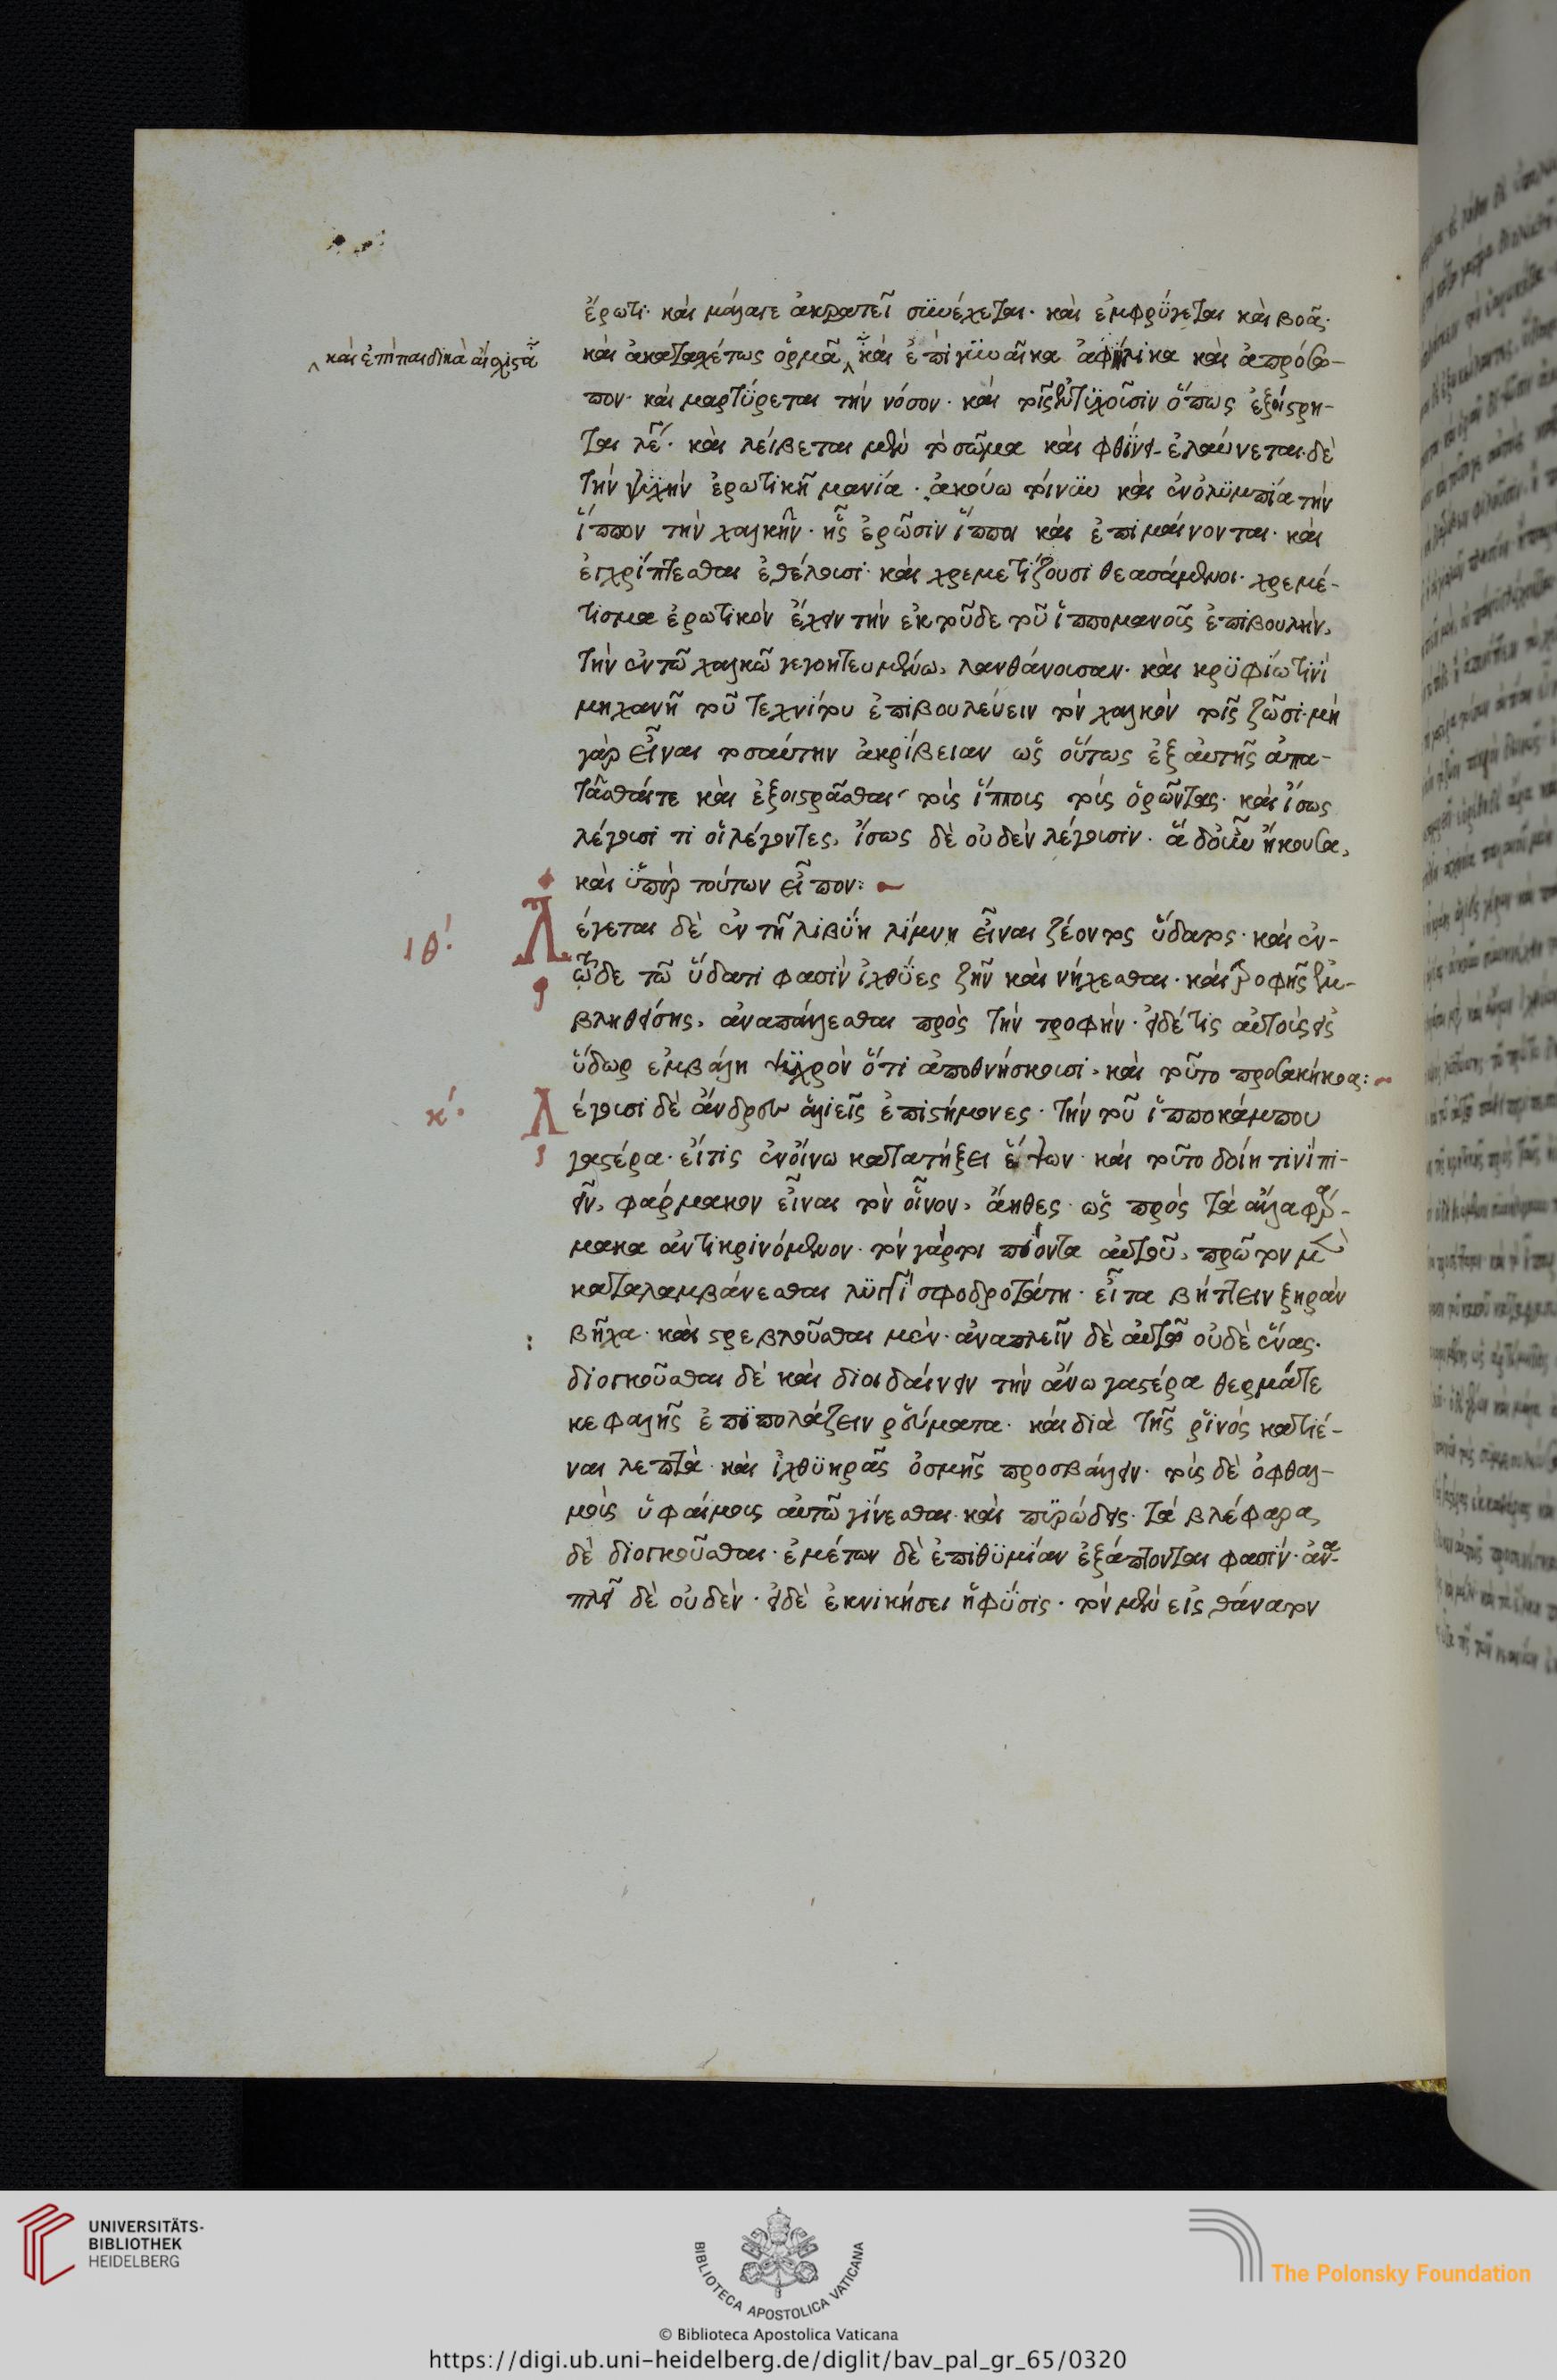 ἔρωτι· καὶ μάλα γε ἀκρατεῖ συνέχεται· καὶ ἐμφρύγεται καὶ βοᾷ·
καὶ ἀκατασχέτως ὁρμᾷ καὶ ἐπὶ γυναῖκα ἀφήλικα καὶ ἀπρόσω-
καὶ ἐπὶ παιδικὰ αἴσχιστα
πον· καὶ μαρτύρεται τὴν νόσον· καὶ τοῖς ἐντυχοῦσιν ὅπως ἐξοίστρη-
ται λέγει· καὶ λείβεται μὲν τὸ σῶμα καὶ φθίνει· ἐλαύνεται δὲ
τὴν ψυχὴν ἐρωτικῇ μανίᾳ· ἀκούω τοίνυν καὶ ἐν ὀλυμπίᾳ τὴν
ἵππον τὴν χαλκῆν· ἧς ἐρῶσιν ἵπποι καὶ ἐπιμαίνονται· καὶ
ἐγχρίπτεσθαι ἐθέλουσι· καὶ χρεμετίζουσι θεασάμενοι· χρεμέ-
τισμα ἐρωτικὸν ἔχειν τὴν ἐκ τοῦδε τοῦ ἱππομανοῦς ἐπιβουλὴν,
τὴν ἐν τῷ χαλκῷ γεγοητευμένῳ, λανθάνουσαν· καὶ κρυφίῳ τινὶ
μηχανῇ τοῦ τεχνίτου ἐπιβουλεύειν τὸν χαλκὸν τοῖς ζῶσι· μὴ
γὰρ εἶναι τοσαύτην ἀκρίβειαν ὡς οὕτως ἐξ αὐτῆς ἀπα-
τᾶσθαί τε καὶ ἐξοιστρᾶσθαι τοὺς ἵππους τοὺς ὁρῶντας· καὶ ἴσως
λέγουσί τι οἱ λέγοντες, ἴσως δὲ οὐδὲν λέγουσιν· ἃ δ' οὖν ἤκουσα,
καὶ ὑπὲρ τούτων εἶπον:
ιθ'· Λέγεται δὲ ἐν τῇ λιβύῃ λίμνη εἶναι ζέοντος ὕδατος· καὶ ἐν
τῷδε τῷ ὕδατι φασὶν ἰχθύες ζῆν καὶ νήχεσθαι· καὶ τροφῆς ἐμ-
βληθείσης, ἀναπάλλεσθαι πρὸς τὴν τροφήν· εἰ δέ τις αὐτοὺς εἰς
ὕδωρ ἐμβάλῃ ψυχρὸν ὅτι ἀποθνήσκουσι, καὶ τοῦτο προσακήκοα:
κ'· Λέγουσι δὲ ἄνδρες ἁλιεῖς ἐπιστήμονες· τὴν τοῦ ἱπποκάμπου
γαστέρα· εἴ τις ἐν οἴνῳ κατατήξει ἕψων· καὶ τοῦτο δοίη τινὶ πι-
εῖν, φάρμακον εἶναι τὸν οἶνον, ἄηθες ὡς πρὸς τὰ ἄλλα φάρ-
μακα ἀντικρινόμενον· τὸν γάρ τοι πιόντα αὐτοῦ, πρῶτον μὲν
καταλαμβάνεσθαι λυγγὶ σφοδροτάτῃ· εἶτα βήττειν ξηρὰν
βῆχα· καὶ στρεβλοῦσθαι μὲν· ἀναπλεῖν δὲ αὐτῷ οὐδὲ ἕν·
διογκοῦσθαι δὲ καὶ διοιδαίνειν τὴν ἄνω γαστέρα θερμά τε
κεφαλῆς ἐπιπολάζειν ῥεύματα· καὶ διὰ τῆς ῥινὸς κατιέ-
ναι λεπτὰ· καὶ ἰχθυηρᾶς ὀσμῆς προσβάλλειν· τοὺς δὲ ὀφθαλ-
μοὺς ὑφαίμους αὐτῷ γίνεσθαι καὶ πυρώδεις· τὰ βλέφαρα
δὲ διογκοῦσθαι· ἐμέτων δὲ ἐπιθυμίαν ἐξάπτονται φασίν· ἀνα-
πλεῖ δὲ οὐδὲν· εἰ δὲ ἐκνικήσει ἡ φύσις· τὸν μὲν εἰς θάνατον
UNIVERSITÄTS-
BIBLIOTHEK
HEIDELBERG
BIBLIOTECA APOSTOLICA VATICANA
The Polonsky Foundation
© Biblioteca Apostolica Vaticana
https://digi.ub.uni-heidelberg.de/diglit/bav_pal_gr_65/0320